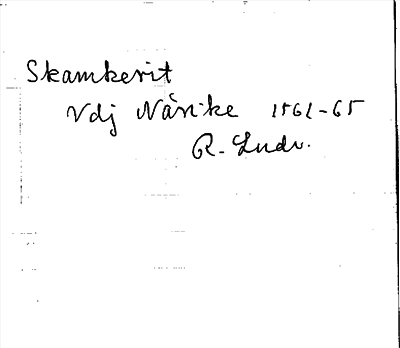 Skamkerit
Vdj Närike 1561-65
R. Ludv.